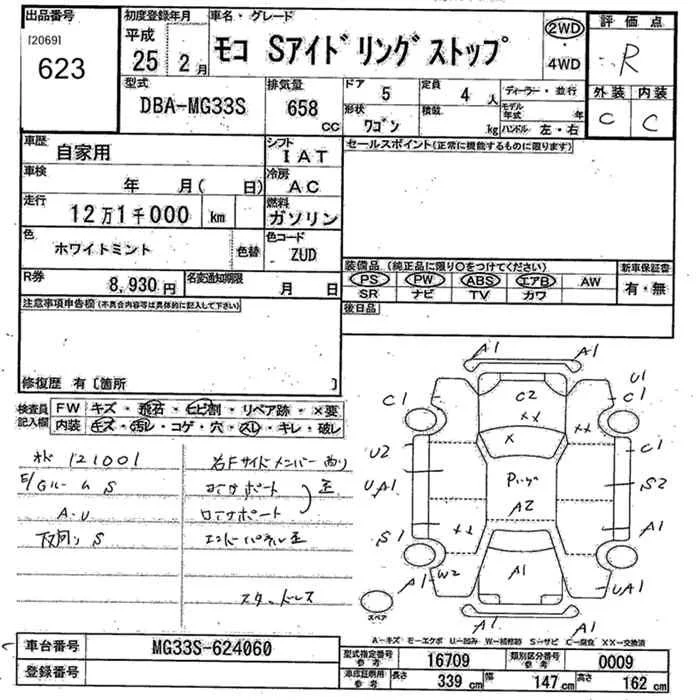 出品番号
[2069]
623
初度登録年月
平成
25 2月
車名・グレード
モコ Sアイドリングストップ
2WD
・
4WD
評価点
R
外装 内装
C C
型式
DBA-MG33S
排気量
658
CC
ドア 5
定員 4 人
形状 ワゴン
積載 kg
ディーラー・並行
モデル年式 年
ハンドル 左・右
車歴
自家用
シフト
IAT
車検
年 月( 日)
冷房
AC
走行
12万1千000 km
燃料
ガソリン
色
ホワイトミント
色替
色コード
ZUD
R券
8,930円
名変通知期限
月 日
セールスポイント(正常に機能するものに限ります)
装備品(純正品に限り○をつけてください)
PS・PW・ABS・エアB・AW
SR・ナビ・TV・カワ
新車保証書
有・無
後日品
注意事項申告欄(不具合内容等は具体的に記入して下さい)
修復歴 有〔箇所 〕
検査員
記入欄
FW キズ・飛石・ヒビ割・リペア跡・×要
内装 キズ・汚レ・コゲ・穴・スレ・キレ・破レ
121001
右Fサイドメンバー
E/Gルーム S
A・U
下回り S
スタッドレス
A1 A1
C2
U1
C1 C1
XX
XX
X
U2 C1
UA1 S2
A2
S1 A1
XX
A1 W2
A1
UA1
A1 A1
スペア
A-キズ E-エクボ U-凹み W-補修跡 S-サビ C-腐食 XX-交換済
車台番号 MG33S-624060
登録番号
型式指定番号
参考
16709
類別区分番号
参考
0009
車庫証明用
参考
長さ 339 cm
幅 147 cm
高さ 162 cm